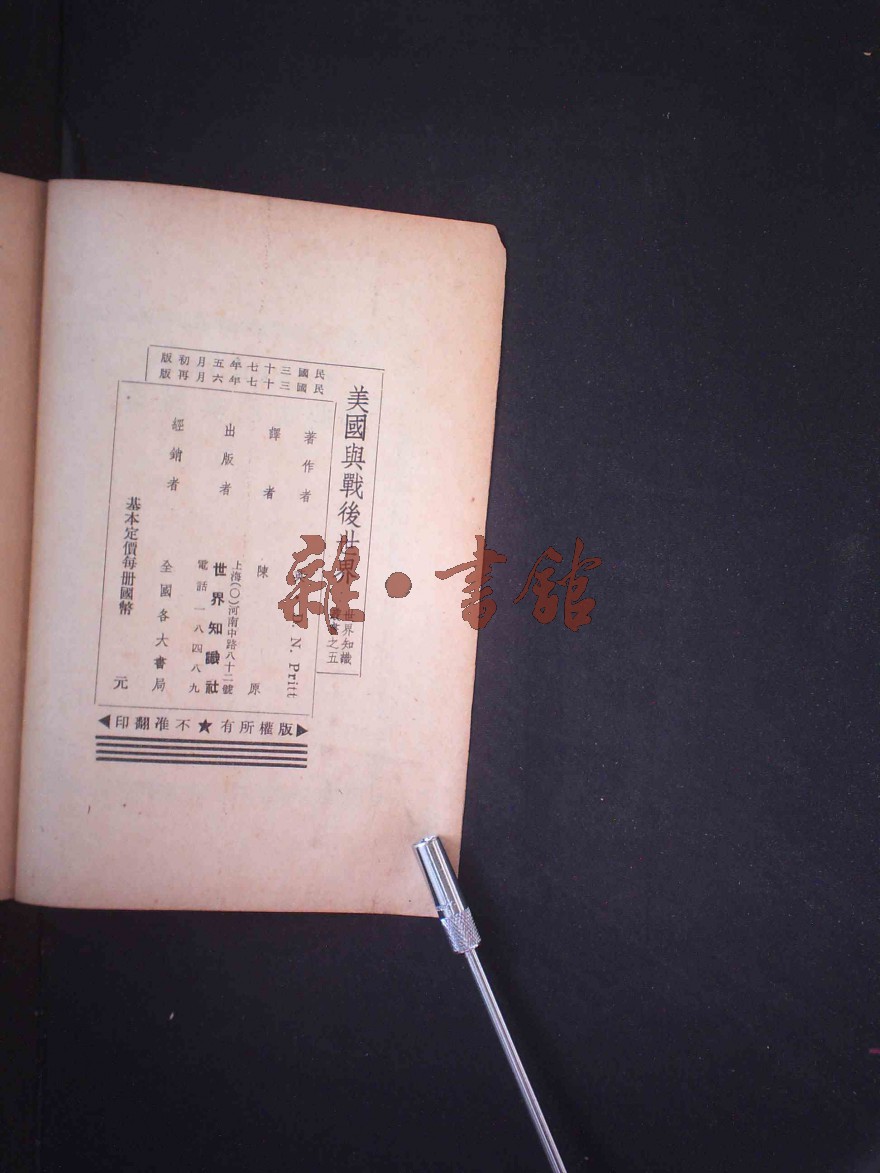 民國三十七年五月初版
民國三十七年六月再版
美國與戰後世界
世界知識
叢書之五
著作者 D. N. Pritt
譯者 陳原
出版者 世界知識社
上海(〇)河南中路八十二號
電話一八四八九
經銷者 全國各大書局
基本定價每册國幣 元
版權所有★不准翻印
雜·書館